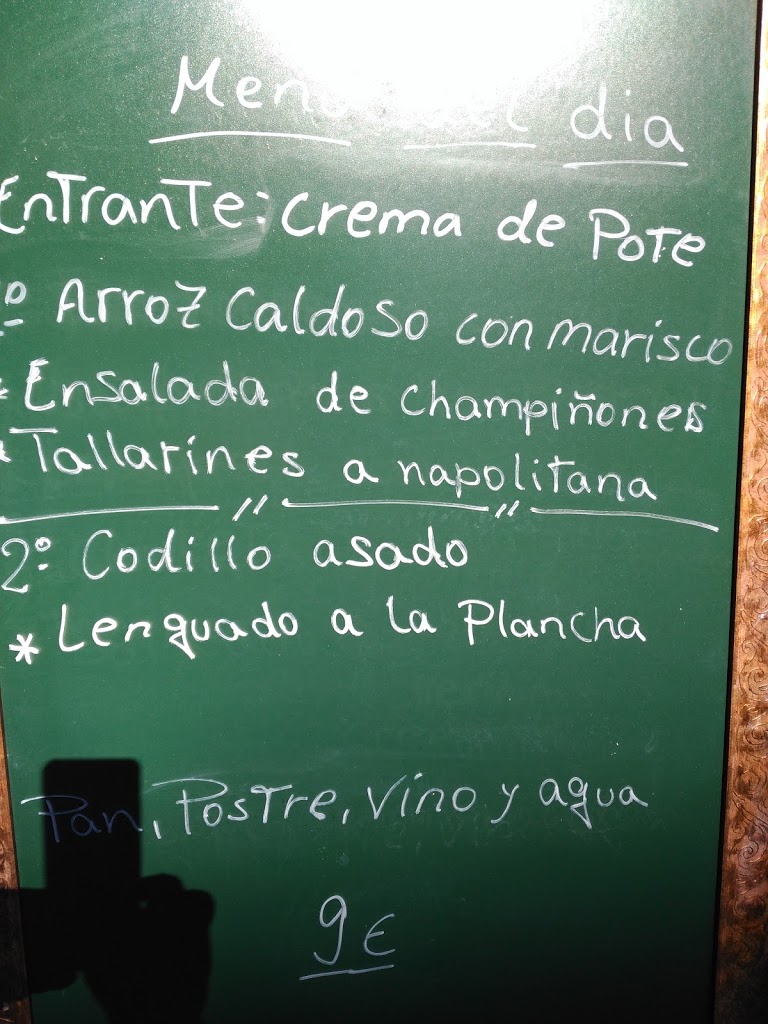 Menú del dia
Entrante: Crema de Pote
1º Arroz Caldoso con marisco
* Ensalada de champiñones
* Tallarines a napolitana
2º Codillo asado
* Lenguado a la Plancha
Pan, Postre, Vino y agua
9€